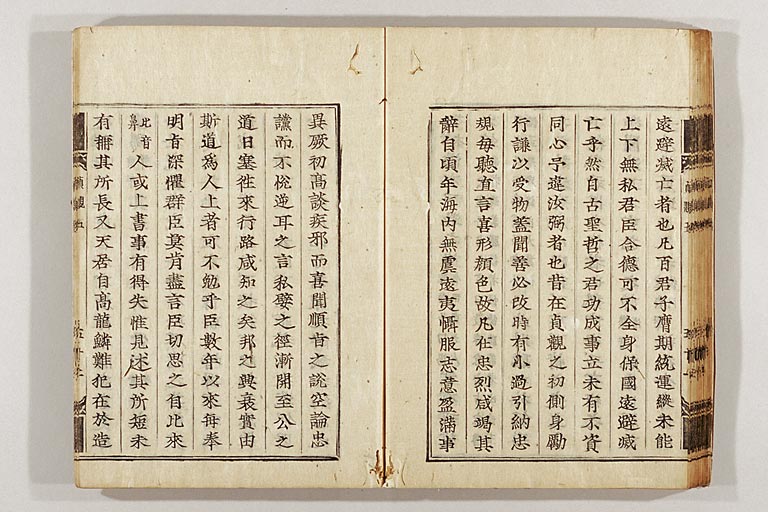 遠避滅亡者也凡百君子膺期統運縱未能
上下無私君臣合德可不全身保國遠避滅
亡乎然自古聖哲之君功成事立未有不資
同心予違汝弼者也昔在貞觀之初側身勵
行謙以受物蓋聞善必改時有小過引納忠
規每聽直言喜形顏色故凡在忠烈咸竭其
辭自頃年海內無虞遠夷懾服志意盈滿事
異厥初高談疾邪而喜聞順旨之說空論忠
讜而不悅逆耳之言私嬖之徑漸開至公之
道日塞往來行路咸知之矣邦之興衰實由
斯道為人上者可不勉乎臣數年以來每奉
明旨深懼群臣莫肯盡言臣切思之自比來
比音鼻人或上書事有得失惟見述其所短未
有稱其所長又天居自高龍鱗難犯在於造